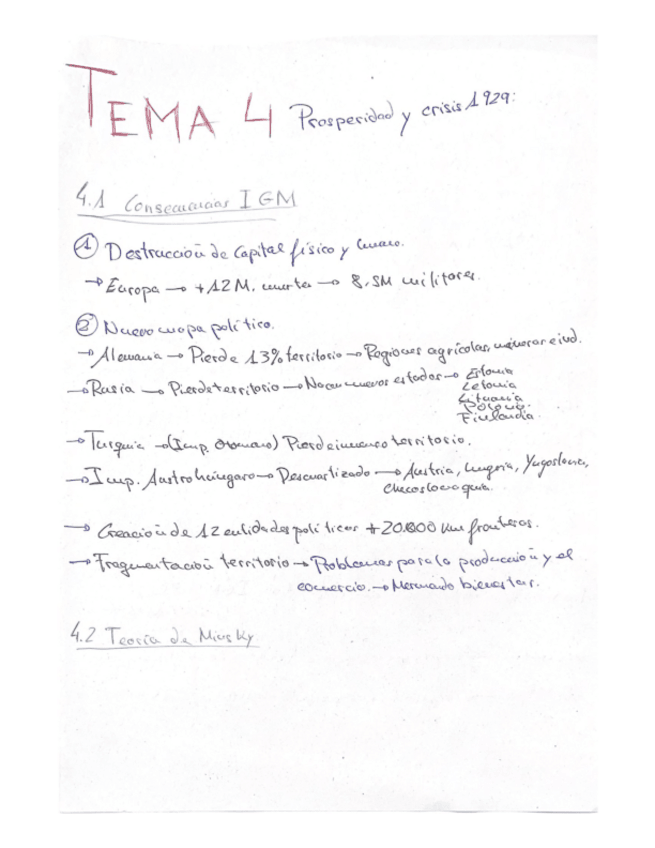 TEMA 4 Prosperidad y crisis 1929:
4.1 Consecuencias I GM
① Destrucción de Capital físico y humano.
→ Europa → +12M. muertes → 8,5M militares.
② Nuevo mapa político.
→ Alemania → Pierde 13% territorio → Regiones agrícolas, mineras e ind.
→ Rusia → Pierde territorio → Nacen nuevos estados → Estonia
Letonia
Lituania
Polonia.
Finlandia.
→ Turquía → (Imp. Otomano) Pierde inmenso territorio.
→ Imp. Austrohúngaro → Descuartizado → Austria, Hungría, Yugoslavia,
Checoslovaquia.
→ Creación de 12 entidades políticas +20.000 km fronteras.
→ Fragmentación territorio → Problemas para la producción y el
comercio. → Mermando bienestar.
4.2 Teoría de Minsky